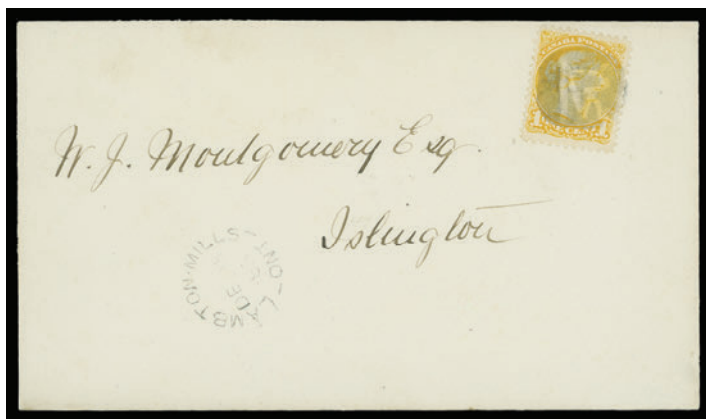 CANADA POSTAGE
1 ONE CENT 1
W. J. Montgomery Esq.
Islington
LAMBTON-MILLS-ONT
DE